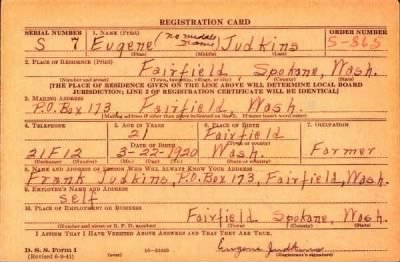 REGISTRATION CARD
SERIAL NUMBER 1. NAME (Print) ORDER NUMBER
S 7 Eugene (no middle name) Judkins S-865
2. PLACE OF RESIDENCE (Print)
Fairfield Spokane, Wash.
(Number and street) (Town, township, village, or city) (County) (State)
[THE PLACE OF RESIDENCE GIVEN ON THE LINE ABOVE WILL DETERMINE LOCAL BOARD
JURISDICTION; LINE 2 OF REGISTRATION CERTIFICATE WILL BE IDENTICAL]
3. MAILING ADDRESS
P.O. Box 173, Fairfield, Wash.
[Mailing address if other than place indicated on line 2. If same insert word same]
4. TELEPHONE 5. AGE IN YEARS 6. PLACE OF BIRTH 7. OCCUPATION
21 Fairfield
DATE OF BIRTH (Town or county)
21F12 3-22-1920 Wash. Farmer
(Exchange) (Number) (Mo.) (Day) (Yr.) (State or country)
8. NAME AND ADDRESS OF PERSON WHO WILL ALWAYS KNOW YOUR ADDRESS
Frank Judkins, P.O. Box 173, Fairfield, Wash.
9. EMPLOYER'S NAME AND ADDRESS
self
10. PLACE OF EMPLOYMENT OR BUSINESS
Fairfield Spokane, Wash.
(Number and street or R. F. D. number) (Town) (County) (State)
I AFFIRM THAT I HAVE VERIFIED ABOVE ANSWERS AND THAT THEY ARE TRUE.
Eugene Judkins
D. S. S. Form 1
(Revised 6-9-41) (over) (Registrant's signature)